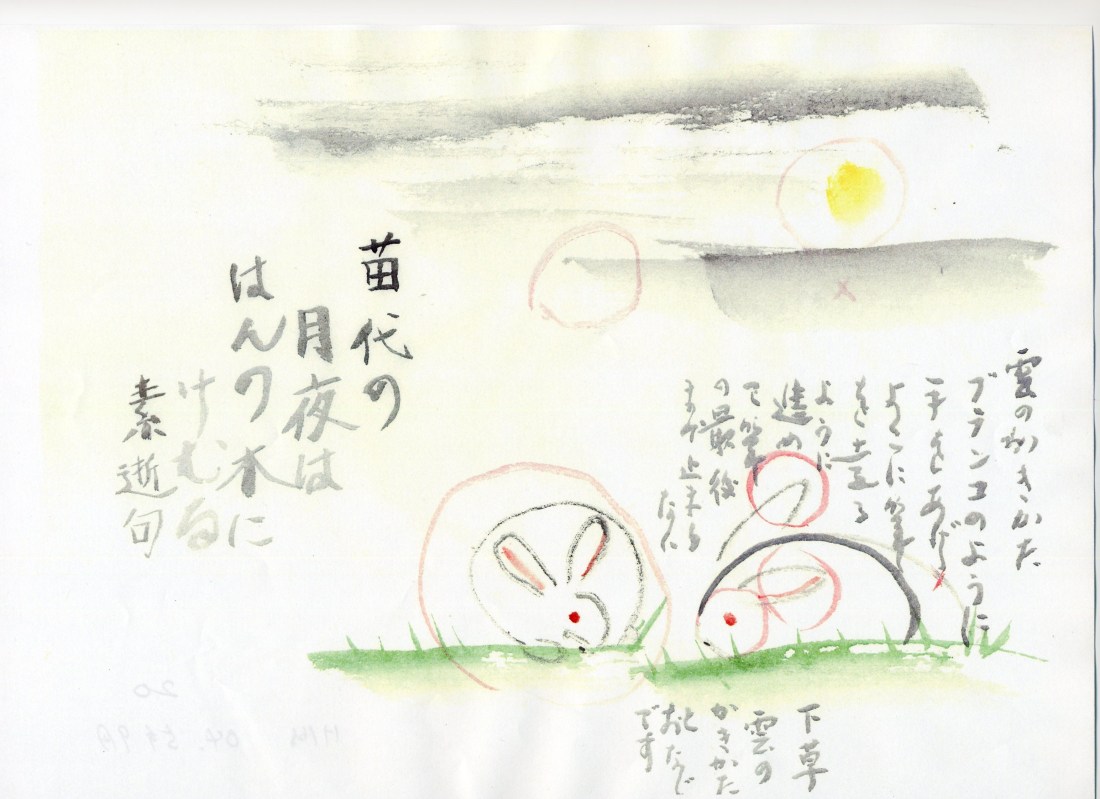 雲のかきかた
ブランコのように
手をあげ
よこに筆
を走る
ように
進め
て筆
の最後
まで止まる
苗代の
月夜は
はんの木に
けむる
素逝句
下草
雲の
かきかた
とおなじ
です